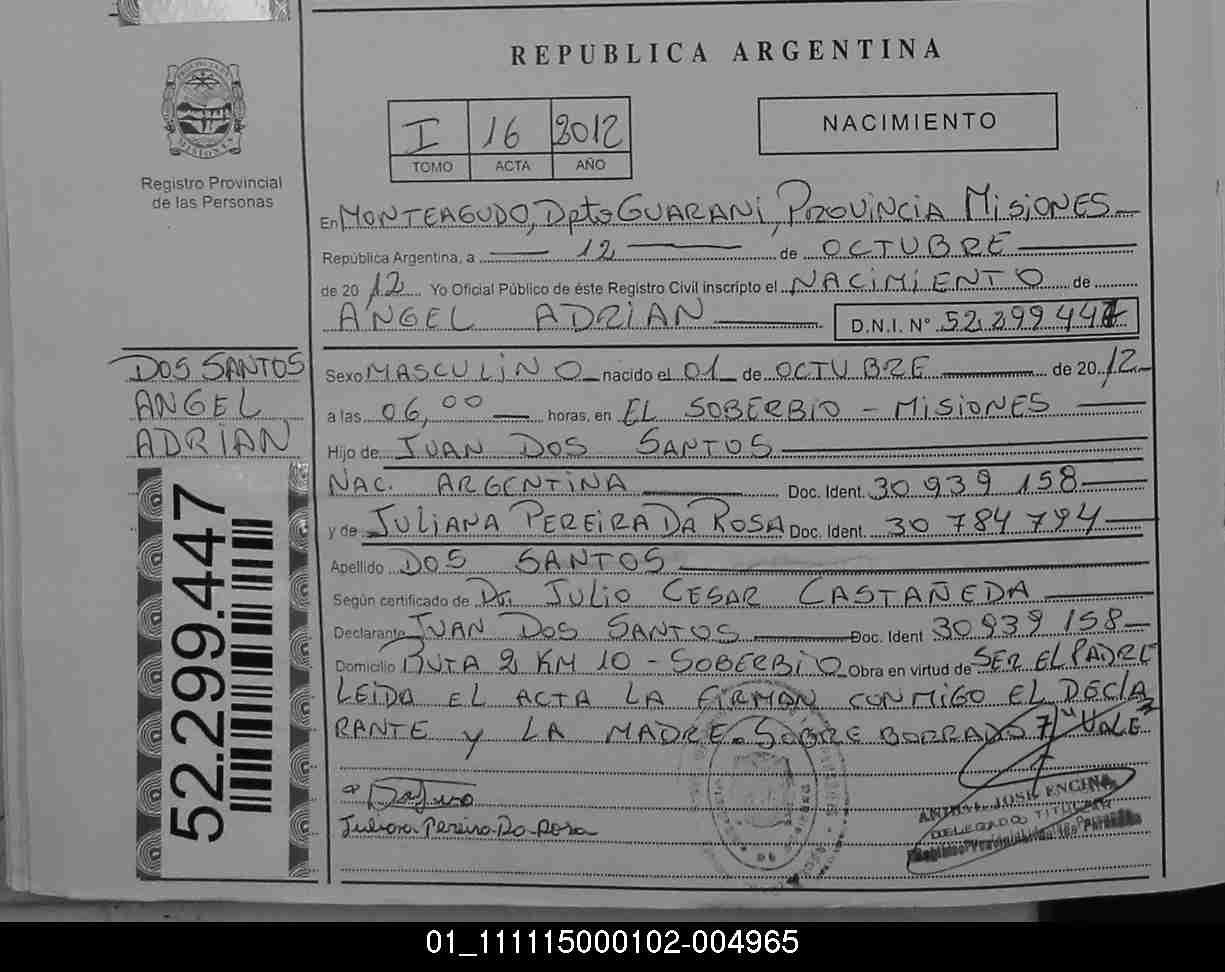 REPUBLICA ARGENTINA
PROVINCIA DE
MISIONES
Registro Provincial
de las Personas
I 16 2012
TOMO ACTA AÑO
NACIMIENTO
En MONTEAGUDO, Dpto GUARANI, PROVINCIA MISIONES
República Argentina, a 12 de OCTUBRE
de 2012 Yo Oficial Público de éste Registro Civil inscripto el NACIMIENTO de
ANGEL ADRIAN D.N.I. N° 52.299.447
DOS SANTOS
ANGEL
ADRIAN
52.299.447
Sexo MASCULINO nacido el 01 de OCTUBRE de 2012
a las 06,00 horas, en EL SOBERBIO - MISIONES
Hijo de JUAN DOS SANTOS
NAC. ARGENTINA Doc. Ident. 30 939 158
y de JULIANA PEREIRA DA ROSA Doc. Ident. 30 784 794
Apellido DOS SANTOS
Según certificado de Dr. JULIO CESAR CASTAÑEDA
Declarante JUAN DOS SANTOS Doc. Ident 30 939 158
Domicilio RUTA 2 KM 10 - SOBERBIO Obra en virtud de SER EL PADRE
LEIDA EL ACTA LA FIRMAN CONMIGO EL DECLA
RANTE y LA MADRE. SOBRE BORRADO "7" VALE
Juliana Pereira Da Rosa
ANIBAL JOSE ENCINA
DELEGADO TITULAR
Registro Provincial de las Personas
01_111115000102-004965